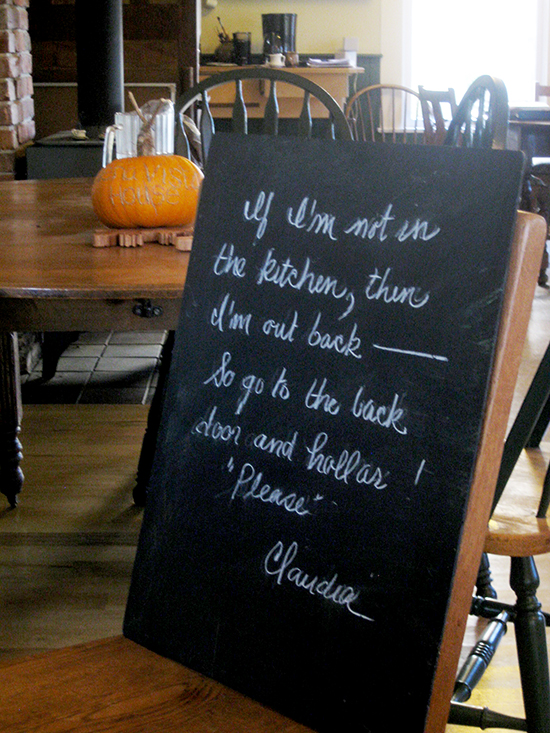 If I'm not in
the kitchen, then
I'm out back —
So go to the back
door and hollar!
"Please"
Claudia
House